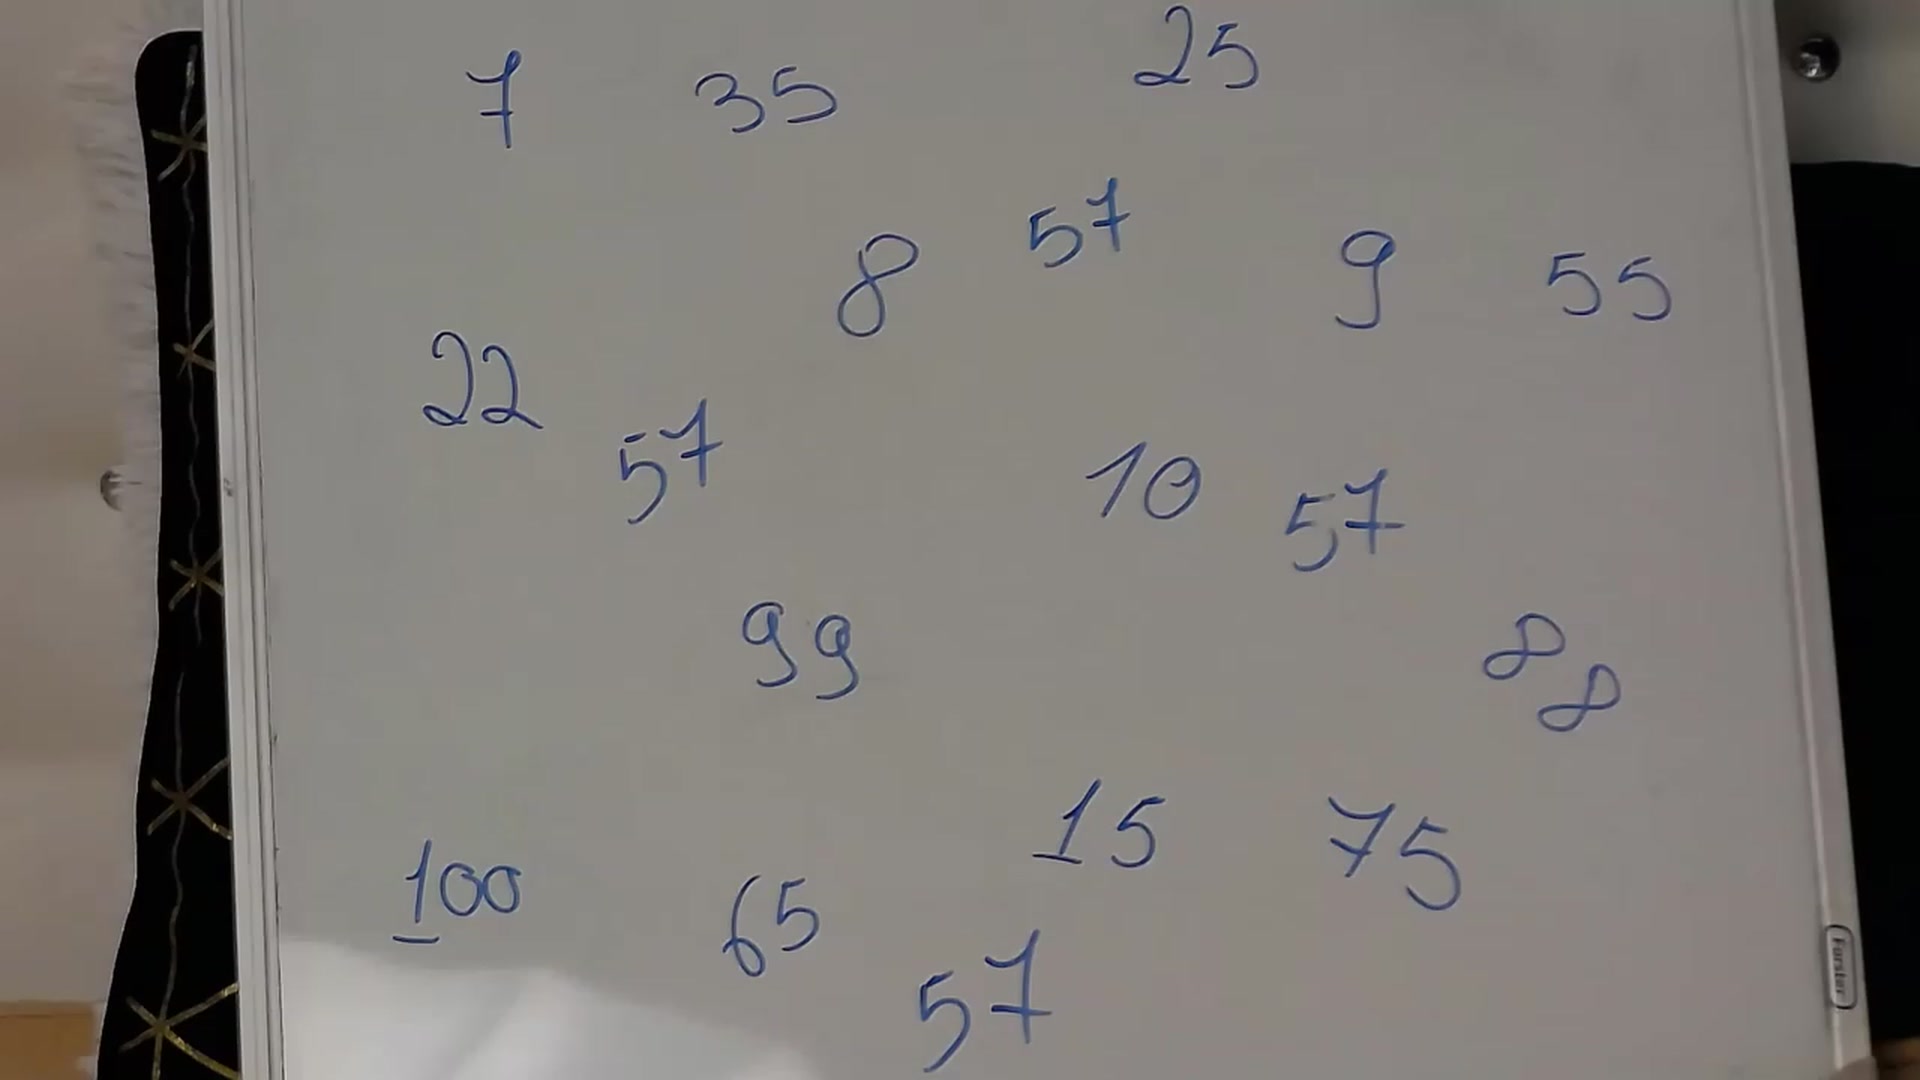 7 35 25
8 57 9 55
22 57 10 57
99 88
100 65 15 75
57
Forster